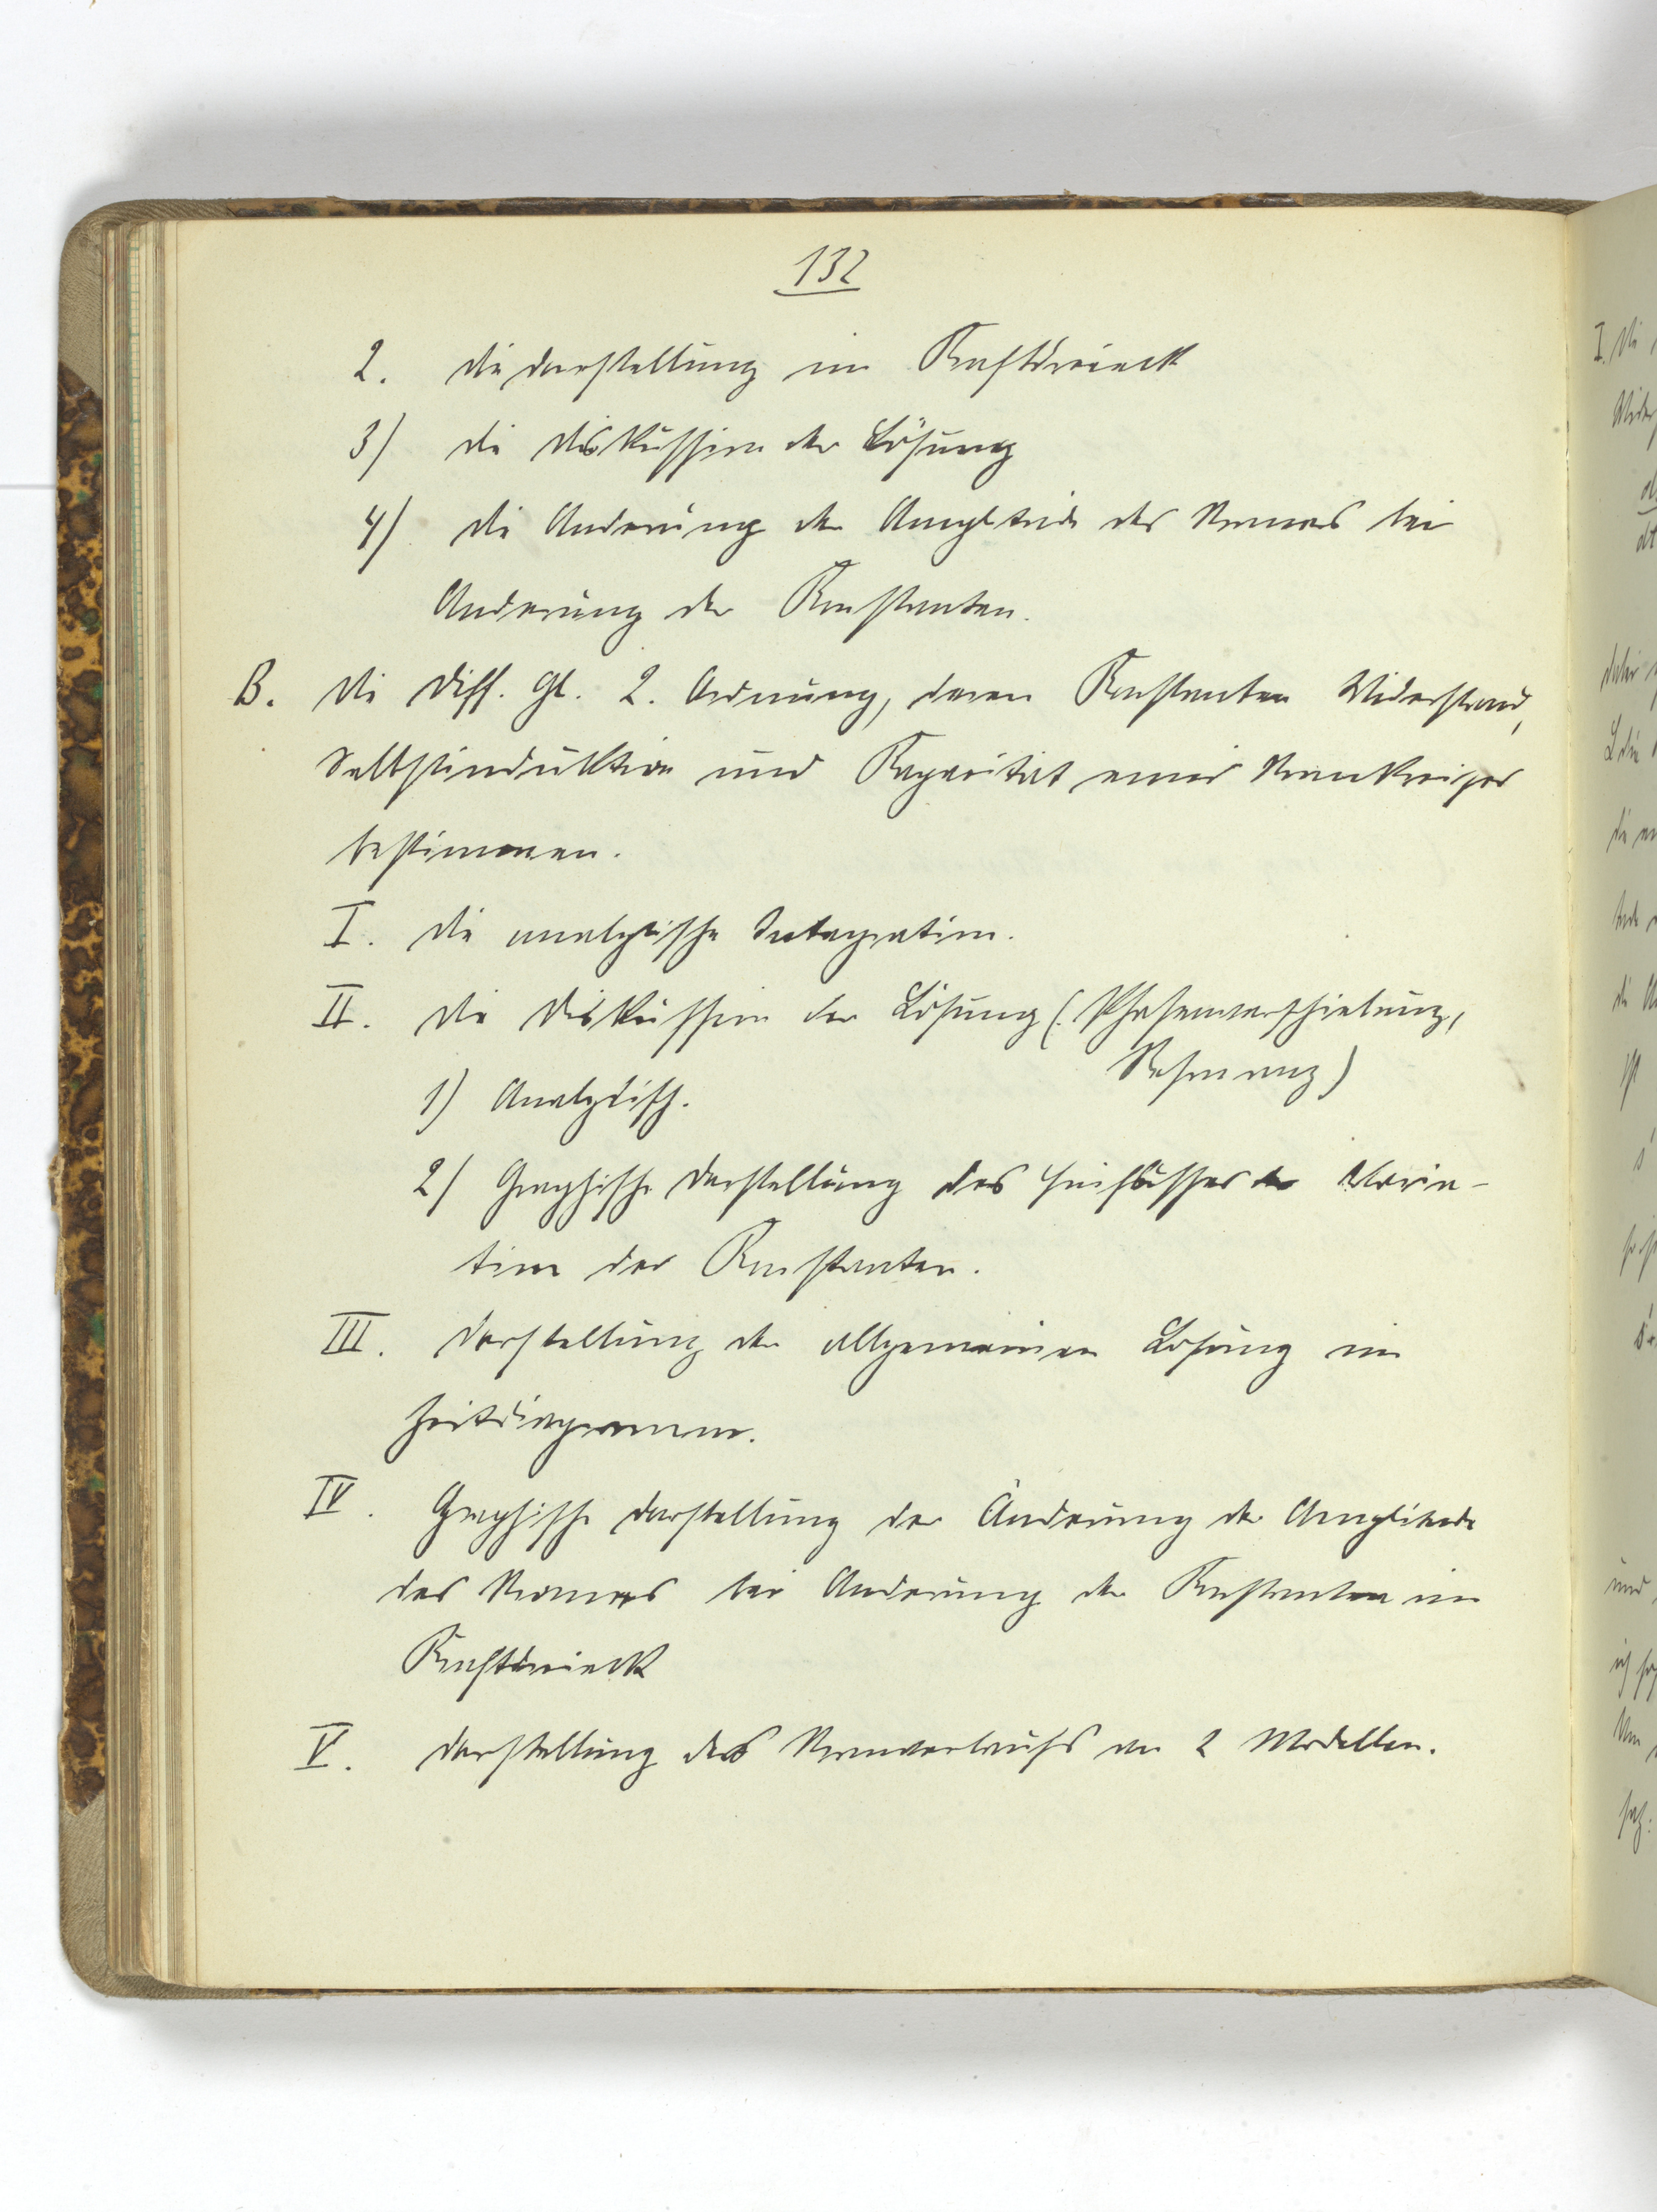 132
2. die Darstellung im Kraftdreieck
3) die Diskussion der Lösung
4) die Anderung der Amplitude des Stromes bei
Anderung der Konstanten.
B. Die Diff. Gl. 2. Ordnung, deren Konstanten Widerstand,
Selbstinduktion und Kapacität eines Stromkreises
bestimmen.
I. die analytische Integration.
II. die Diskussion der Lösung (Phasenverschiebung,
Resonanz)
1) Analytisch.
2) Graphische Darstellung des Einflusses der Varia-
tion der Konstanten.
III. Darstellung der allgemeinen Lösung im
Zeitdiagramm.
IV. Graphische Darstellung der Änderung der Amplitude
des Stromes bei Anderung der Konstanten im
Kraftdreieck
V. Darstellung des Stromverlaufs an 2 Modellen.